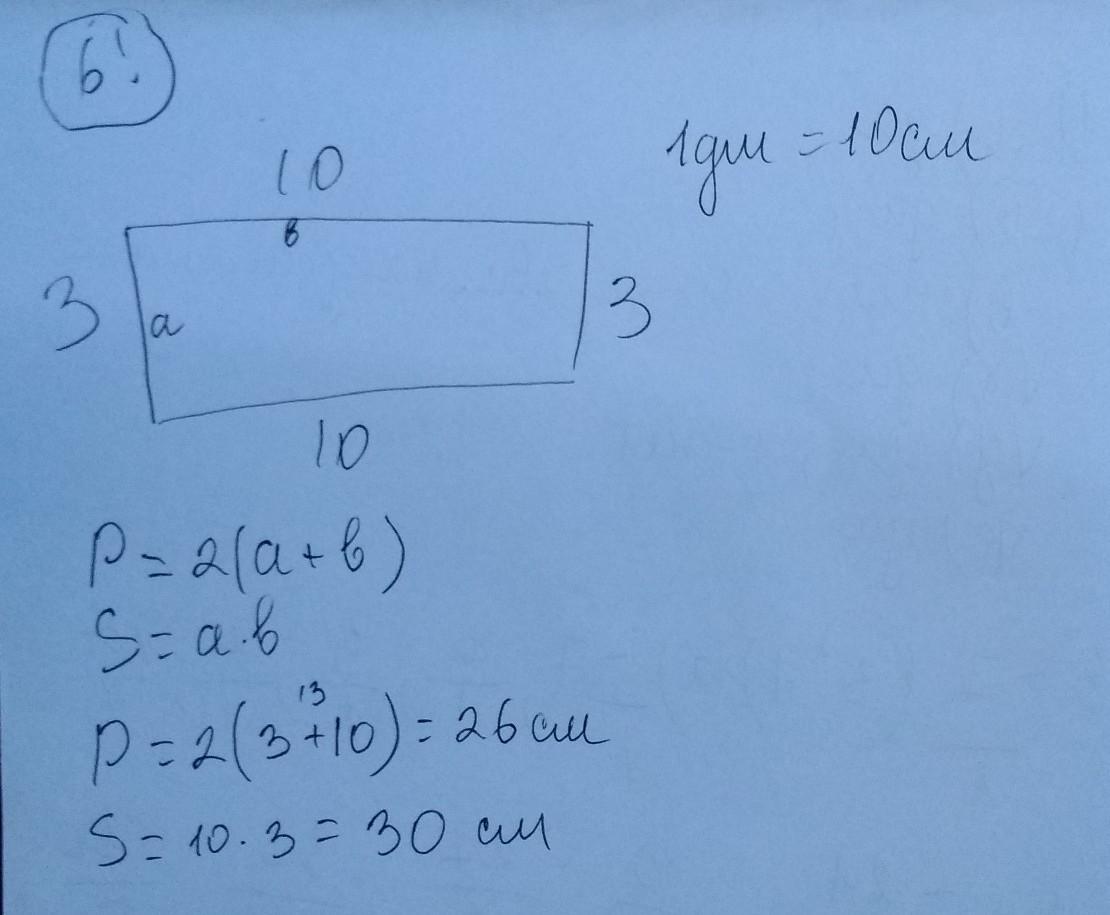 6!
1дм = 10см
10
в
3
а
3
10
P = 2(a + b)
S = a · b
13
P = 2(3 + 10) = 26 см
S = 10 · 3 = 30 см